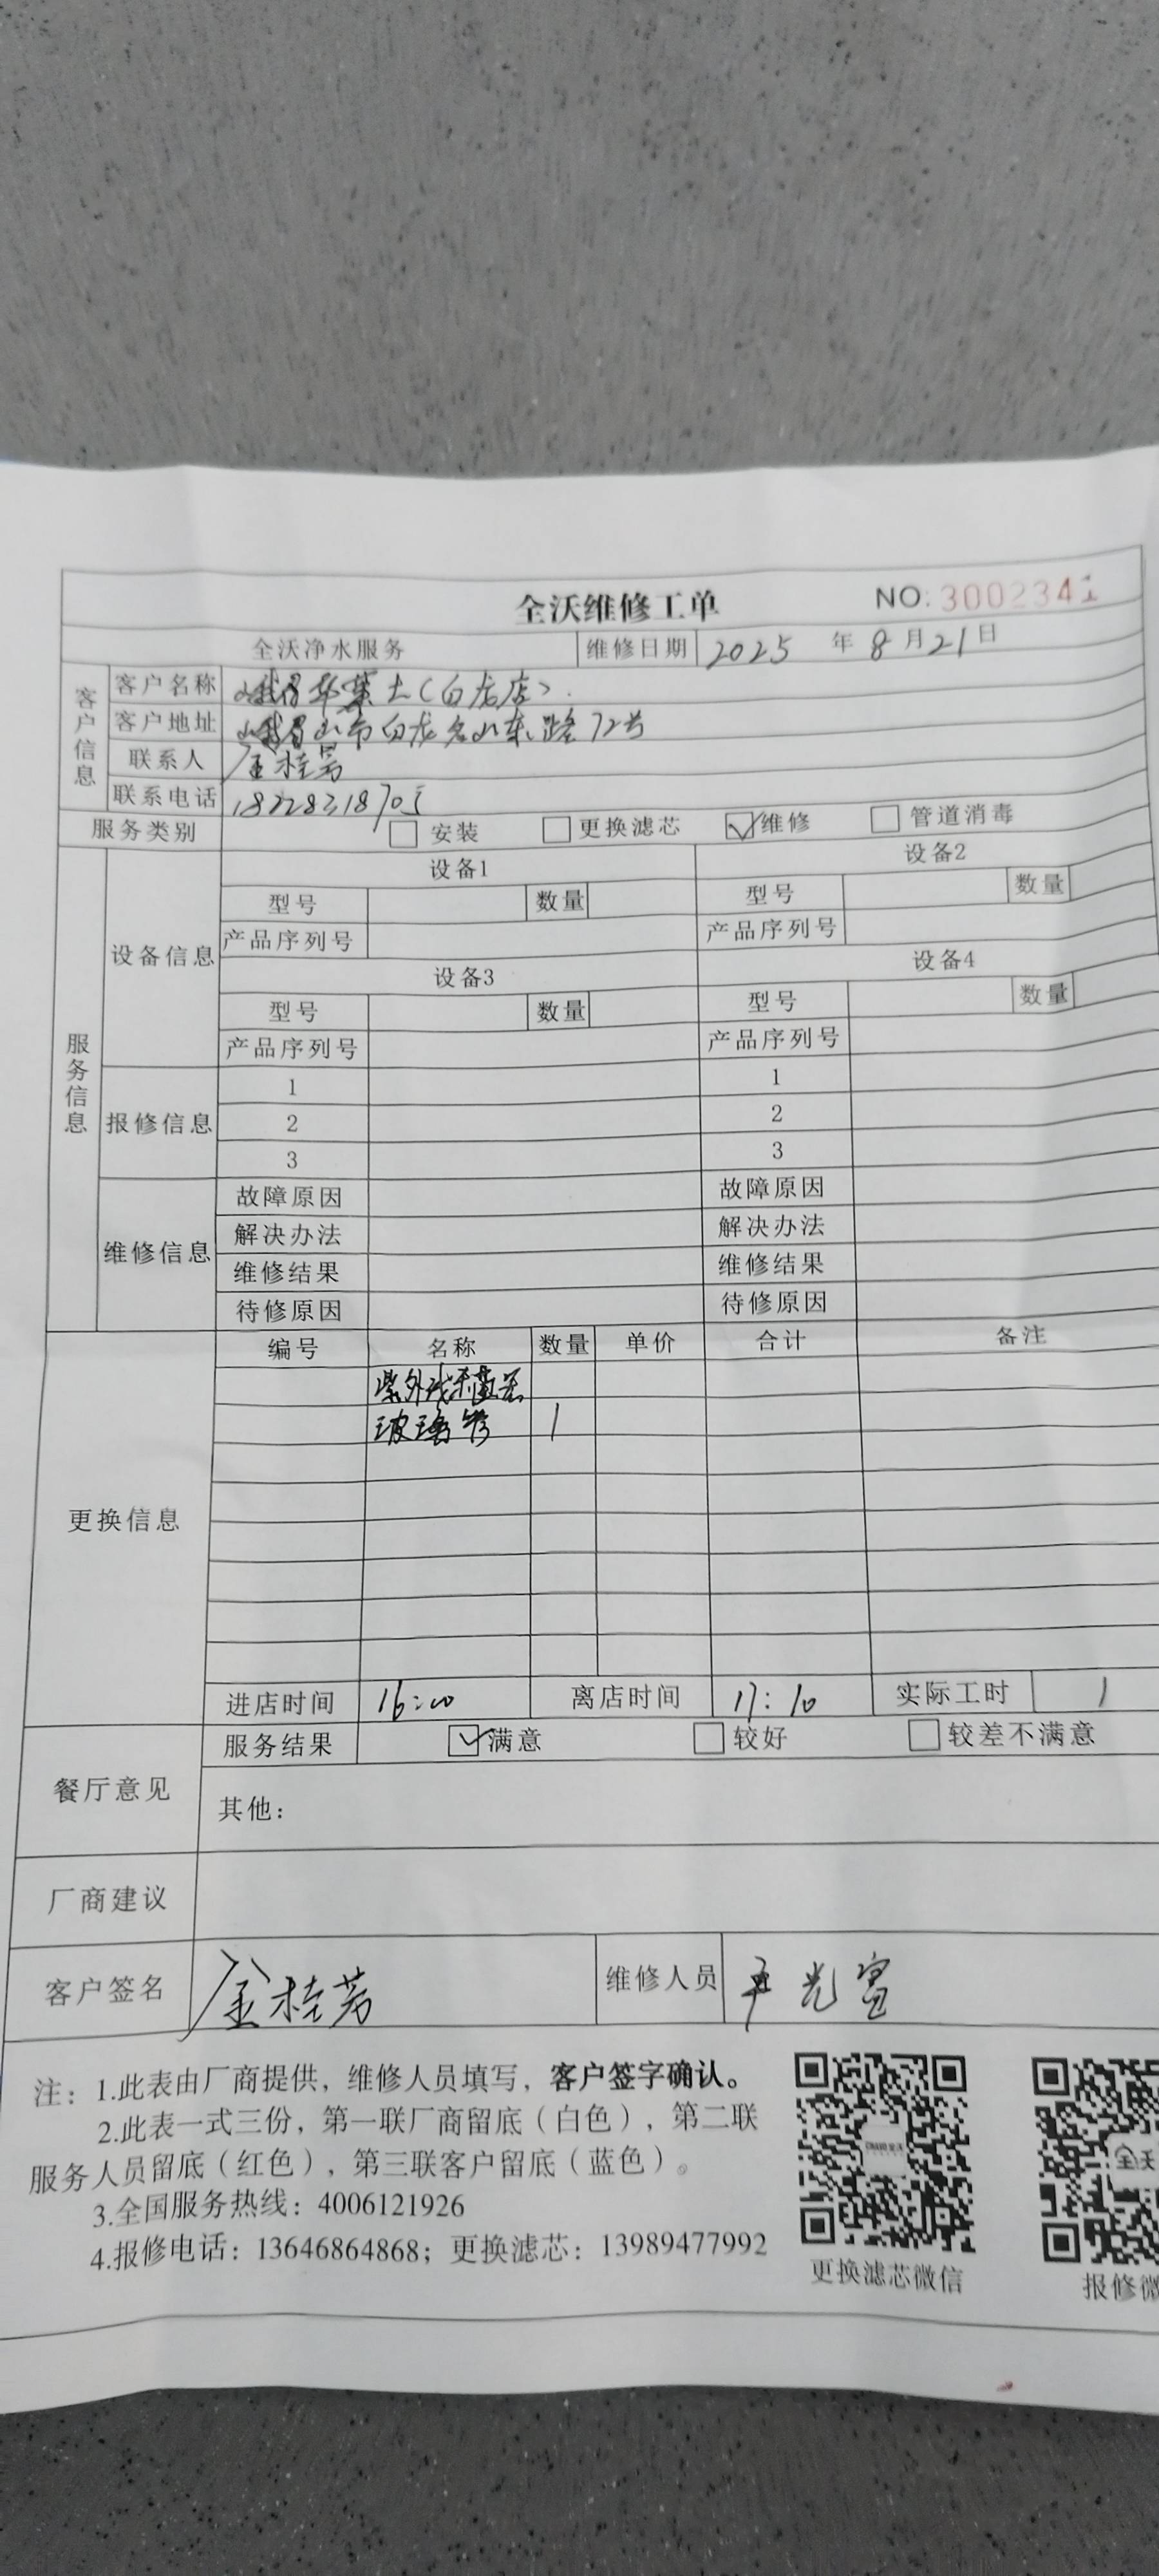 全沃维修工单 NO:3002341
全沃净水服务 维修日期 2025 年 8 月 21 日
客户信息
客户名称 峨眉华莱士(白龙店)
客户地址 峨眉山市白龙名山东路72号
联系人 金桂芳
联系电话 18228318705
服务类别 安装 更换滤芯 维修 管道消毒
服务信息
设备信息
设备1 设备2
型号 数量 型号 数量
产品序列号 产品序列号
设备3 设备4
型号 数量 型号 数量
产品序列号 产品序列号
报修信息
1 1
2 2
3 3
维修信息
故障原因 故障原因
解决办法 解决办法
维修结果 维修结果
待修原因 待修原因
更换信息
编号 名称 数量 单价 合计 备注
紫外线杀菌器
玻璃管 1
进店时间 16:00 离店时间 17:10 实际工时 1
餐厅意见
服务结果 满意 较好 较差不满意
其他:
厂商建议
客户签名 金桂芳 维修人员 光
注:1.此表由厂商提供,维修人员填写,客户签字确认。
2.此表一式三份,第一联厂商留底(白色),第二联
服务人员留底(红色),第三联客户留底(蓝色)。
3.全国服务热线:4006121926
4.报修电话:13646864868;更换滤芯:13989477992
更换滤芯微信 报修微